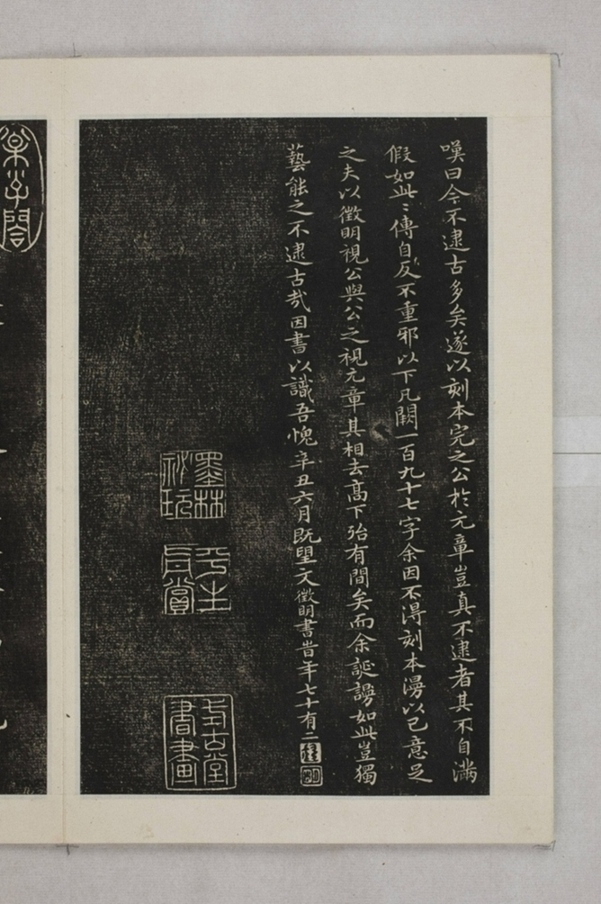 嘆曰今不逮古多矣遂以刻本完之公於元章豈真不逮者其不自滿
假如此此傳自反不重邪以下凡闕一百九十七字余因不得刻本漫以己意足
之夫以徵明視公與公之視元章其相去高下殆有間矣而余誕謾如此豈獨
藝能之不逮古哉因書以識吾愧辛丑六月既望文徵明書時年七十有二
徵明
墨林秘玩
平生真賞
書畫